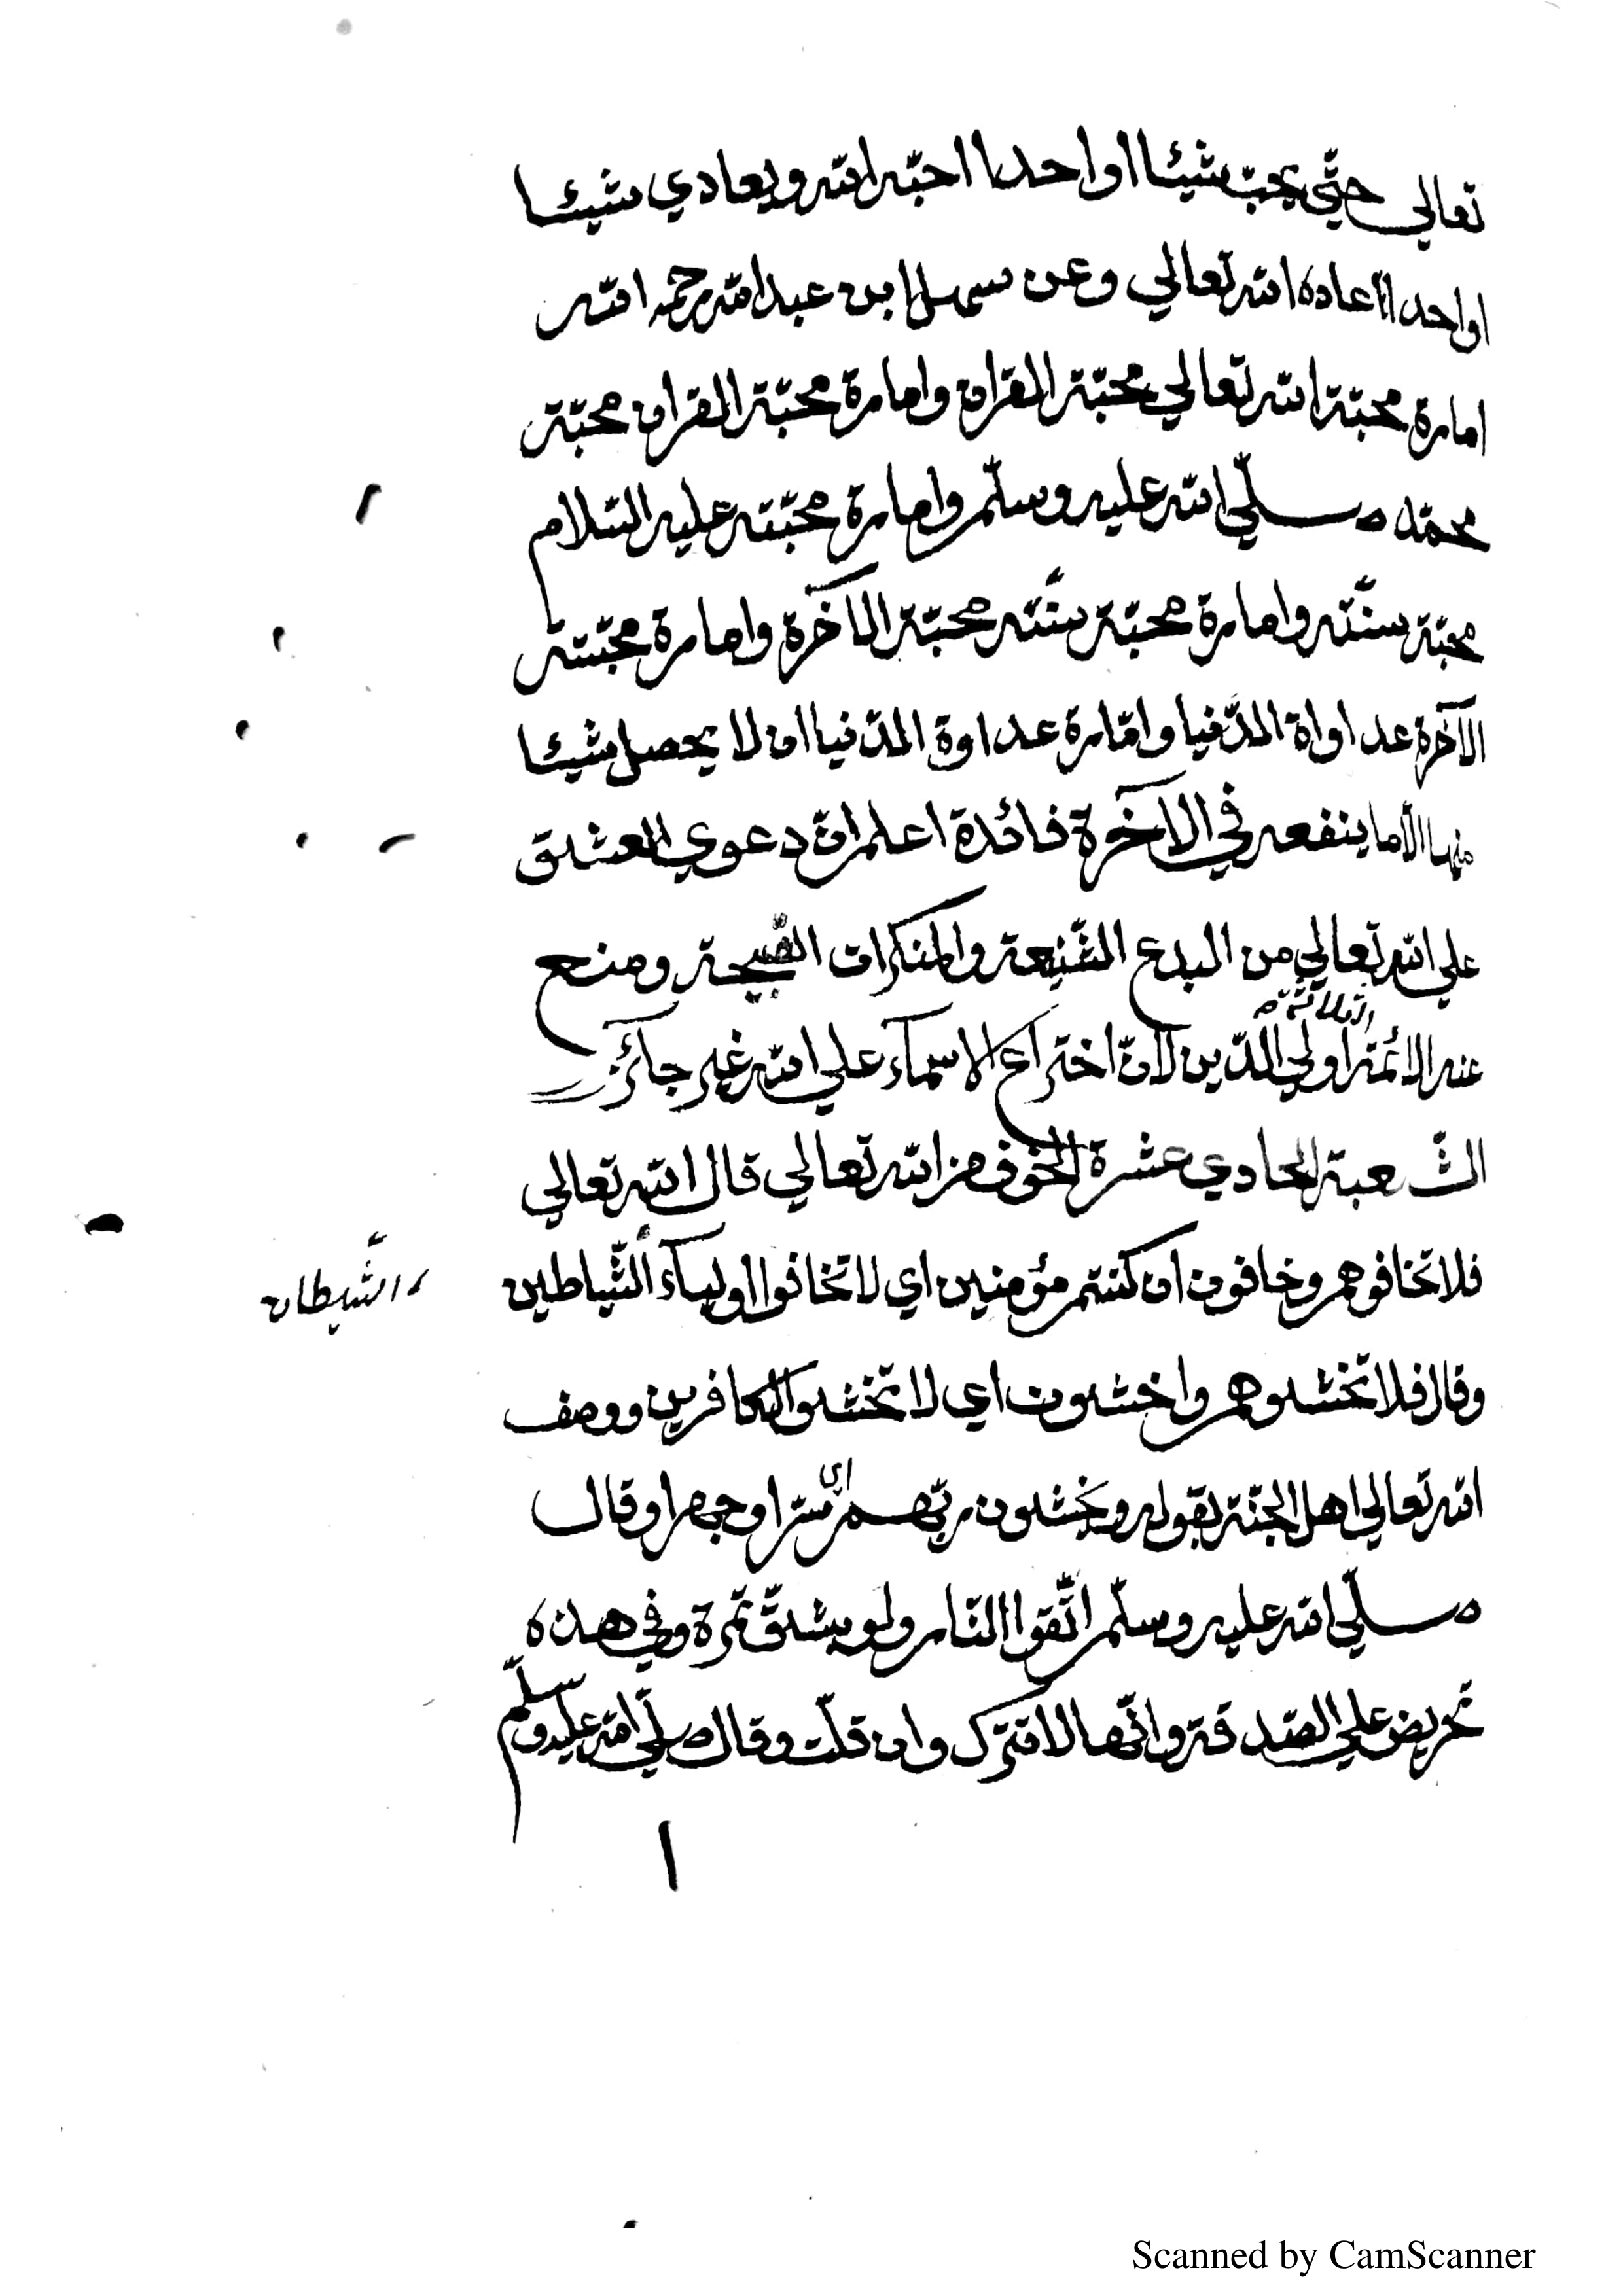 تعالي حتّي يحبّ شيئا او احدا احبّه الله ويعادي شيئا
او احدا عاداه الله تعالي وعن سهل ابن عبد الله رحمه الله
امارة محبّة الله تعالي محبّة القران وامارة محبّة القران محبّة
محمّد صلّي الله عليه وسلّم وامارة محبّته عليه السّلام
محبّة سنّته وامارة محبّة سنّته محبّة الآخرة وامارة محبّته
الآخرة عداواة الدّنيا وامّارة عداوة الدّنيا ان لا يحصل شيئا
منها الّا ما ينفعه في الآخرة فائدة اعلم انّ دعوي العشق
علي الله تعالي من البدع الشّنيعة والمنكرات القبيحة ومنع
الثّلاثة
عنه الائمّة اولي الدّين لانّ اختراع الاسمآء علي الله غير جآئز
الشّعبة الحادي عشرة الخوف من الله تعالي قال الله تعالي
فلا تخافوهم وخافون ان كنتم مؤمنين اي لا تخافوا اوليآء الشّياطين
الشّيطان
وقال فلا تخشوهم واخشون اي لا تخشوا الكافرين ووصف
اي
الله تعالي اهل الجنّة بقوله ويخشون ربّهم سرّا وجهرا وقال
صلّي الله عليه وسلّم اتّقوا النّار ولو بشقّ تمرة وفي هذه
تحريض علي الصّدقة وانّها لا تترك وان قلّت وقال صلّي الله عليه وسلّم
Scanned by CamScanner